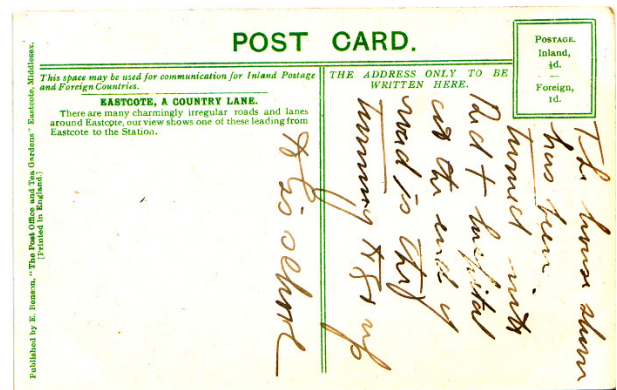 POST CARD.
POSTAGE.
Inland,
½d.
Foreign,
1d.
This space may be used for communication for Inland Postage
and Foreign Countries.
THE ADDRESS ONLY TO BE
WRITTEN HERE.
EASTCOTE, A COUNTRY LANE.
There are many charmingly irregular roads and lanes
around Eastcote, our view shows one of these leading from
Eastcote to the Station.
Published by E. Benson, "The Post Office and Tea Gardens" Eastcote, Middlesex.
[Printed in England.]
The house shown
has been
turned into
Red + hospital
at the end of
road is the
turning to go up
to school